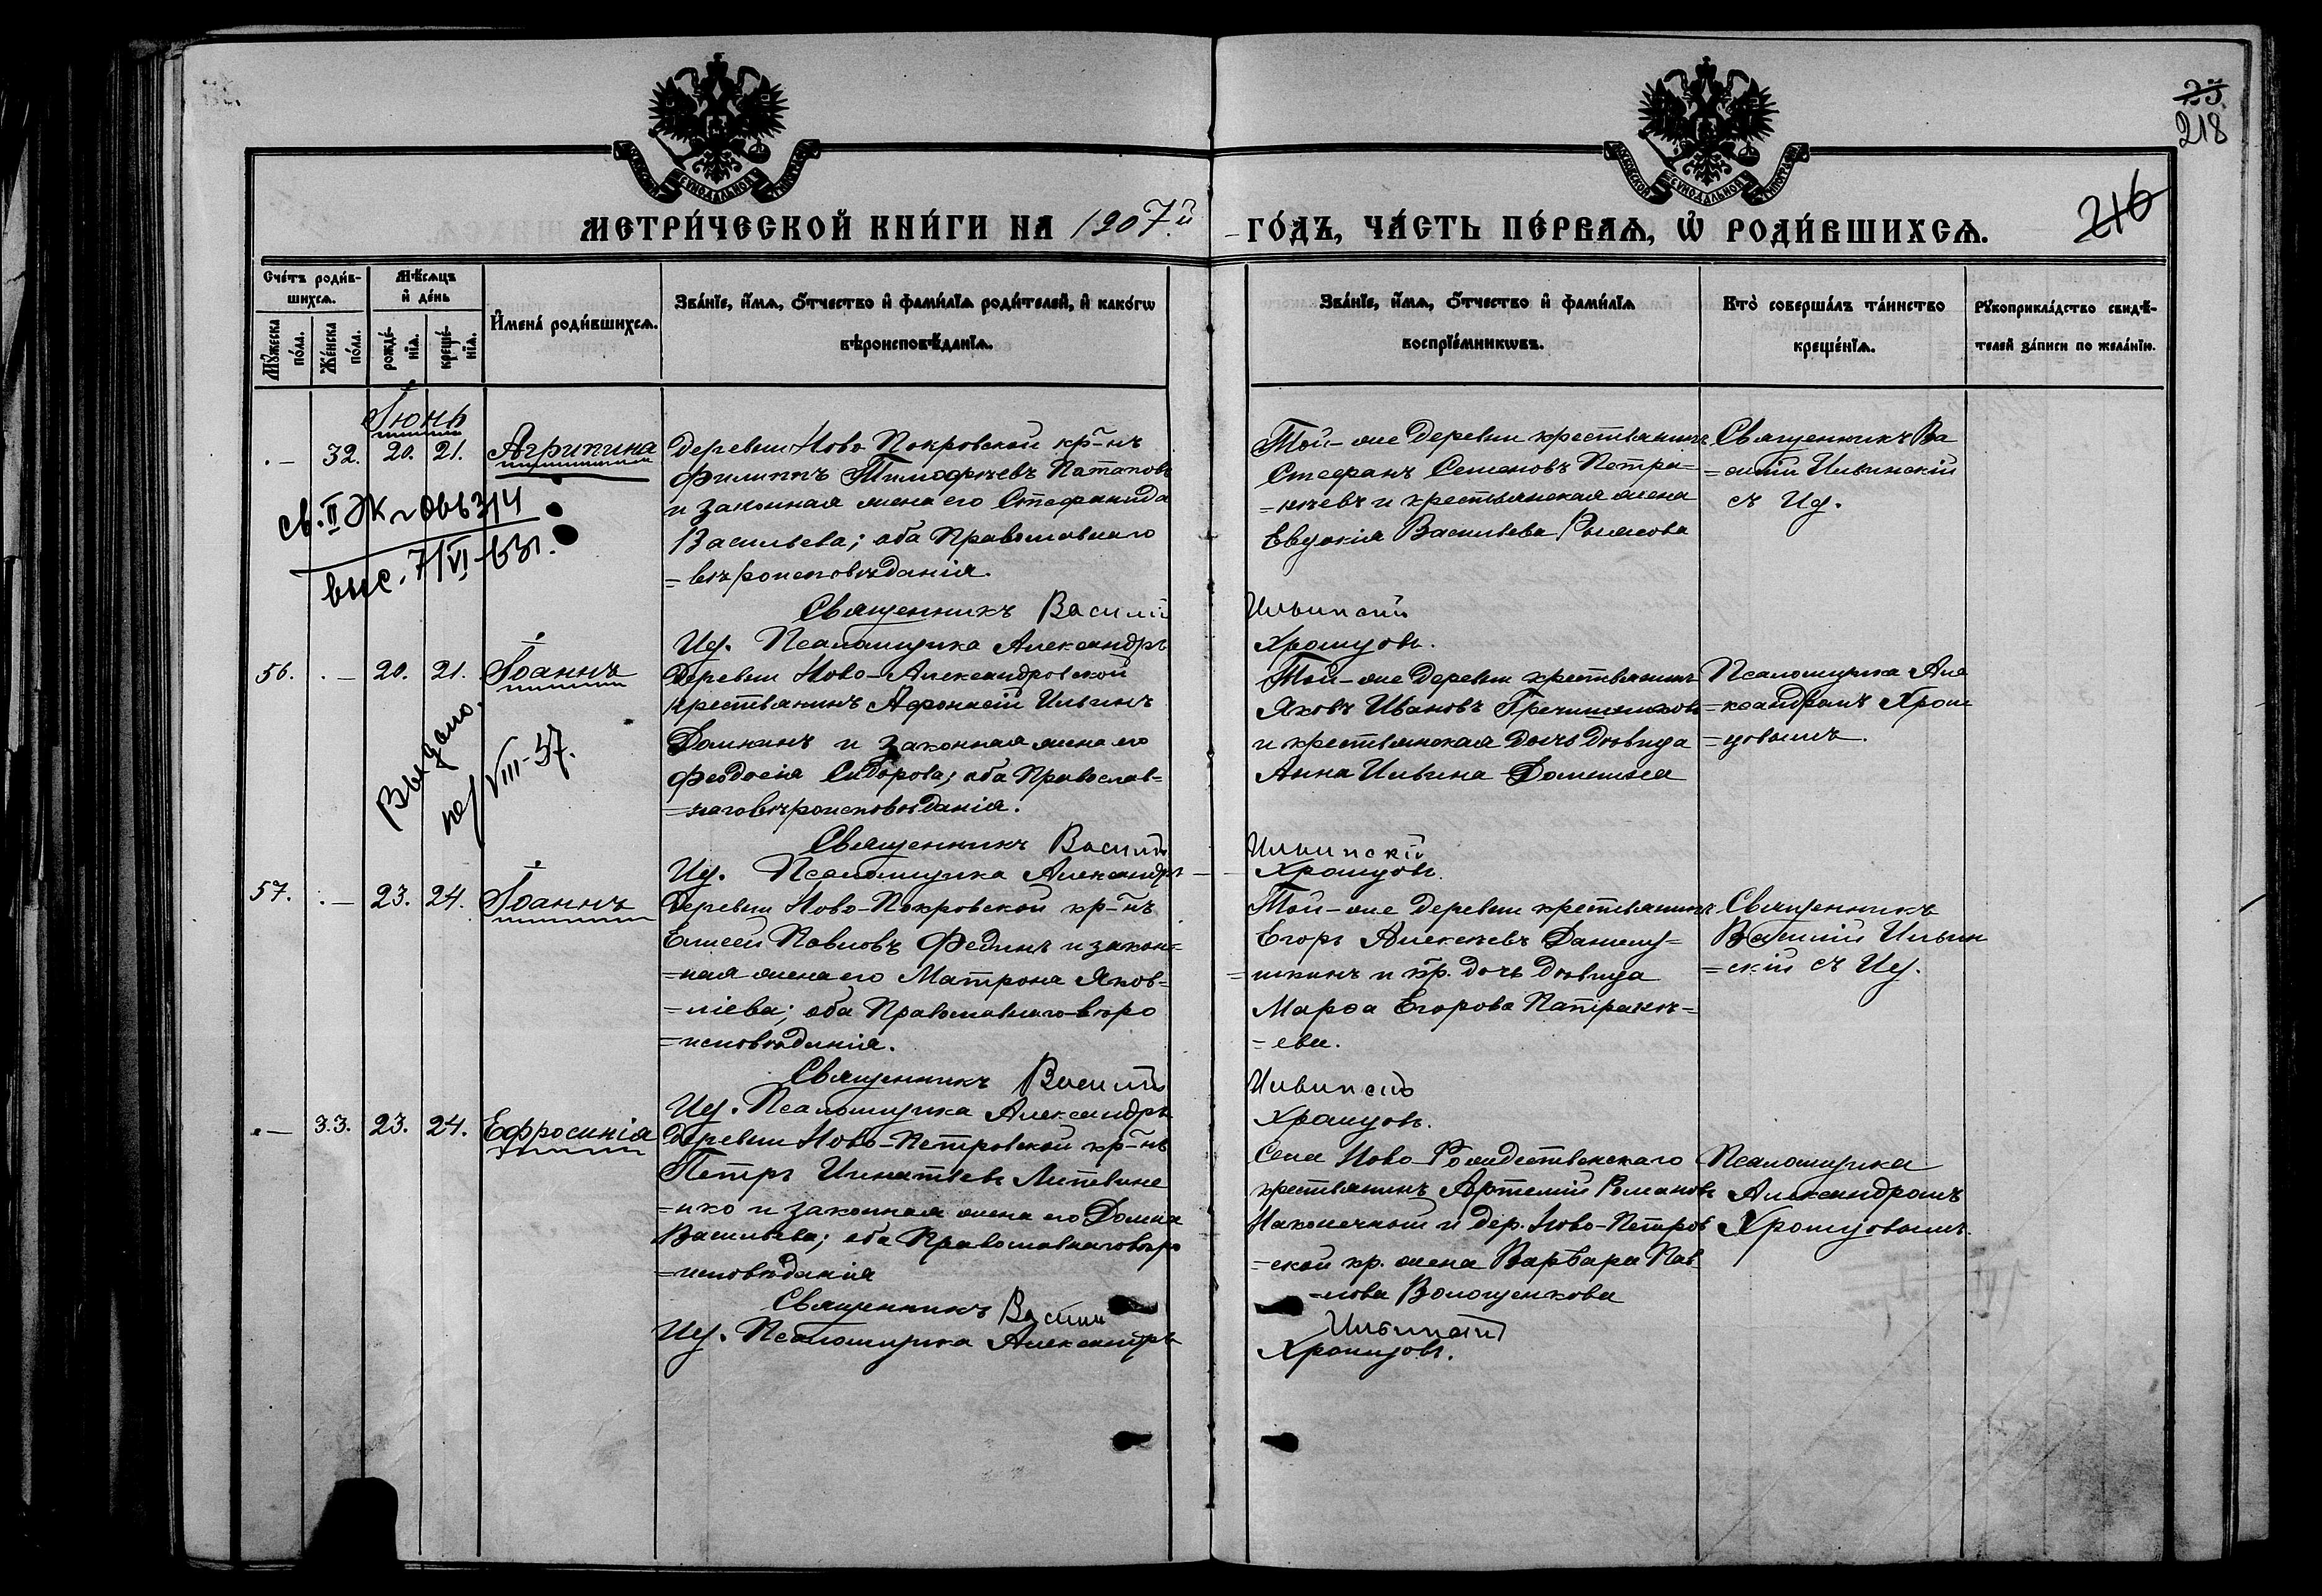 25
218
216
МЕТРИ́ЧЕСКОЙ КНИ́ГИ НА 1907.й ГО́ДЪ, ЧА́СТЬ ПЕ́РВАѦ, Ѡ҆ РОДИ́ВШИХСѦ.
Сче́тъ роди́в-
шихсѧ.
Мꙋ́жеска
по́ла.
Же́нска
по́ла.
Мѣ́сѧцъ
и҆ де́нь
рожде́-
нїѧ.
креще́-
нїѧ.
И҆мена̀ роди́вшихсѧ.
Зва́нїе, и҆́мѧ, ѻ҆́тчество и҆ фами́лїѧ роди́телей, и҆ како́гѡ
вѣроисповѣ́данїѧ.
Зва́нїе, и҆́мѧ, ѻ҆́тчество и҆ фами́лїѧ
воспрїе́мникѡвъ.
Кто̀ соверша́лъ та́инство
креще́нїѧ.
Рꙋкоприкла́дство свидѣ́-
телей за́писи по жела́нїю.
Іюнь
·— 32. 20. 21. Агрипина
Деревни Ново Покровской кр-нъ
Филиппъ Тимофѣевъ Патаповъ
и законная жена его Стефанида
Васильева; оба Православнаго
=вѣроисповѣданія.
Священникъ Василій
Ид. Псаломщика Александръ
Той-же деревни крестьянинъ
Стефанъ Семеновъ Петра=
=кѣевъ и крестьянская жена
Евдокія Васильева
Ильинскій
Храмцовъ.
Священникъ Ва
=силій Ильинскій
съ Ид.
св. II ЖК
выс. 7/VI-53г.
56. ·— 20. 21. Іоаннъ
Деревни Ново-Александровской
крестьянинъ Афонасій Ильинъ
Домнинъ и законная жена его
Феодосія Сидорова; оба Православ=
=наго вѣроисповѣданія.
Священникъ Василій
Ид. Псаломщика Александръ
Той-же деревни крестьянинъ
Яковъ Ивановъ Гречишниковъ
и крестьянская дочь дѣвица
Анна Ильина Домнина
Ильинскій
Храмцовъ.
Псаломщика Але
=ксандромъ Храм
=цовымъ.
Выдано.
VIII-37.
57. ·— 23. 24. Іоаннъ
Деревни Ново-Покровской кр-нъ
Елисей Павловъ Фединъ и закон=
=ная жена его Матрона Яков=
=лева; оба Православнаго вѣро
=исповѣданія.
Священникъ Василій
Ид. Псаломщика Александръ
Той-же деревни крестьянинъ
Егоръ Алексѣевъ Данилу=
=шкинъ и кр. дочь дѣвица
Марѳа Егорова Патракѣ=
=ева.
Ильинскій
Храмцовъ.
Священникъ
Василій Ильин
=скій съ Ид.
·— 33. 23. 24. Ефросинія
Деревни Ново-Петровской кр-нъ
Петръ Игнатьевъ Литвине
=нко и законная жена его Домна
Васильева; оба Православнаго вѣро
=исповѣданія
Священникъ Василій
Ид. Псаломщика Александръ
Села Ново-Рождественскаго
крестьянинъ Артемій Романовъ
Наконечный и дер. Ново-Петров
=ской кр. жена Варвара Пав
=лова Волощенкова
Ильинскій
Храмцовъ.
Псаломщика
Александромъ
Храмцовымъ.